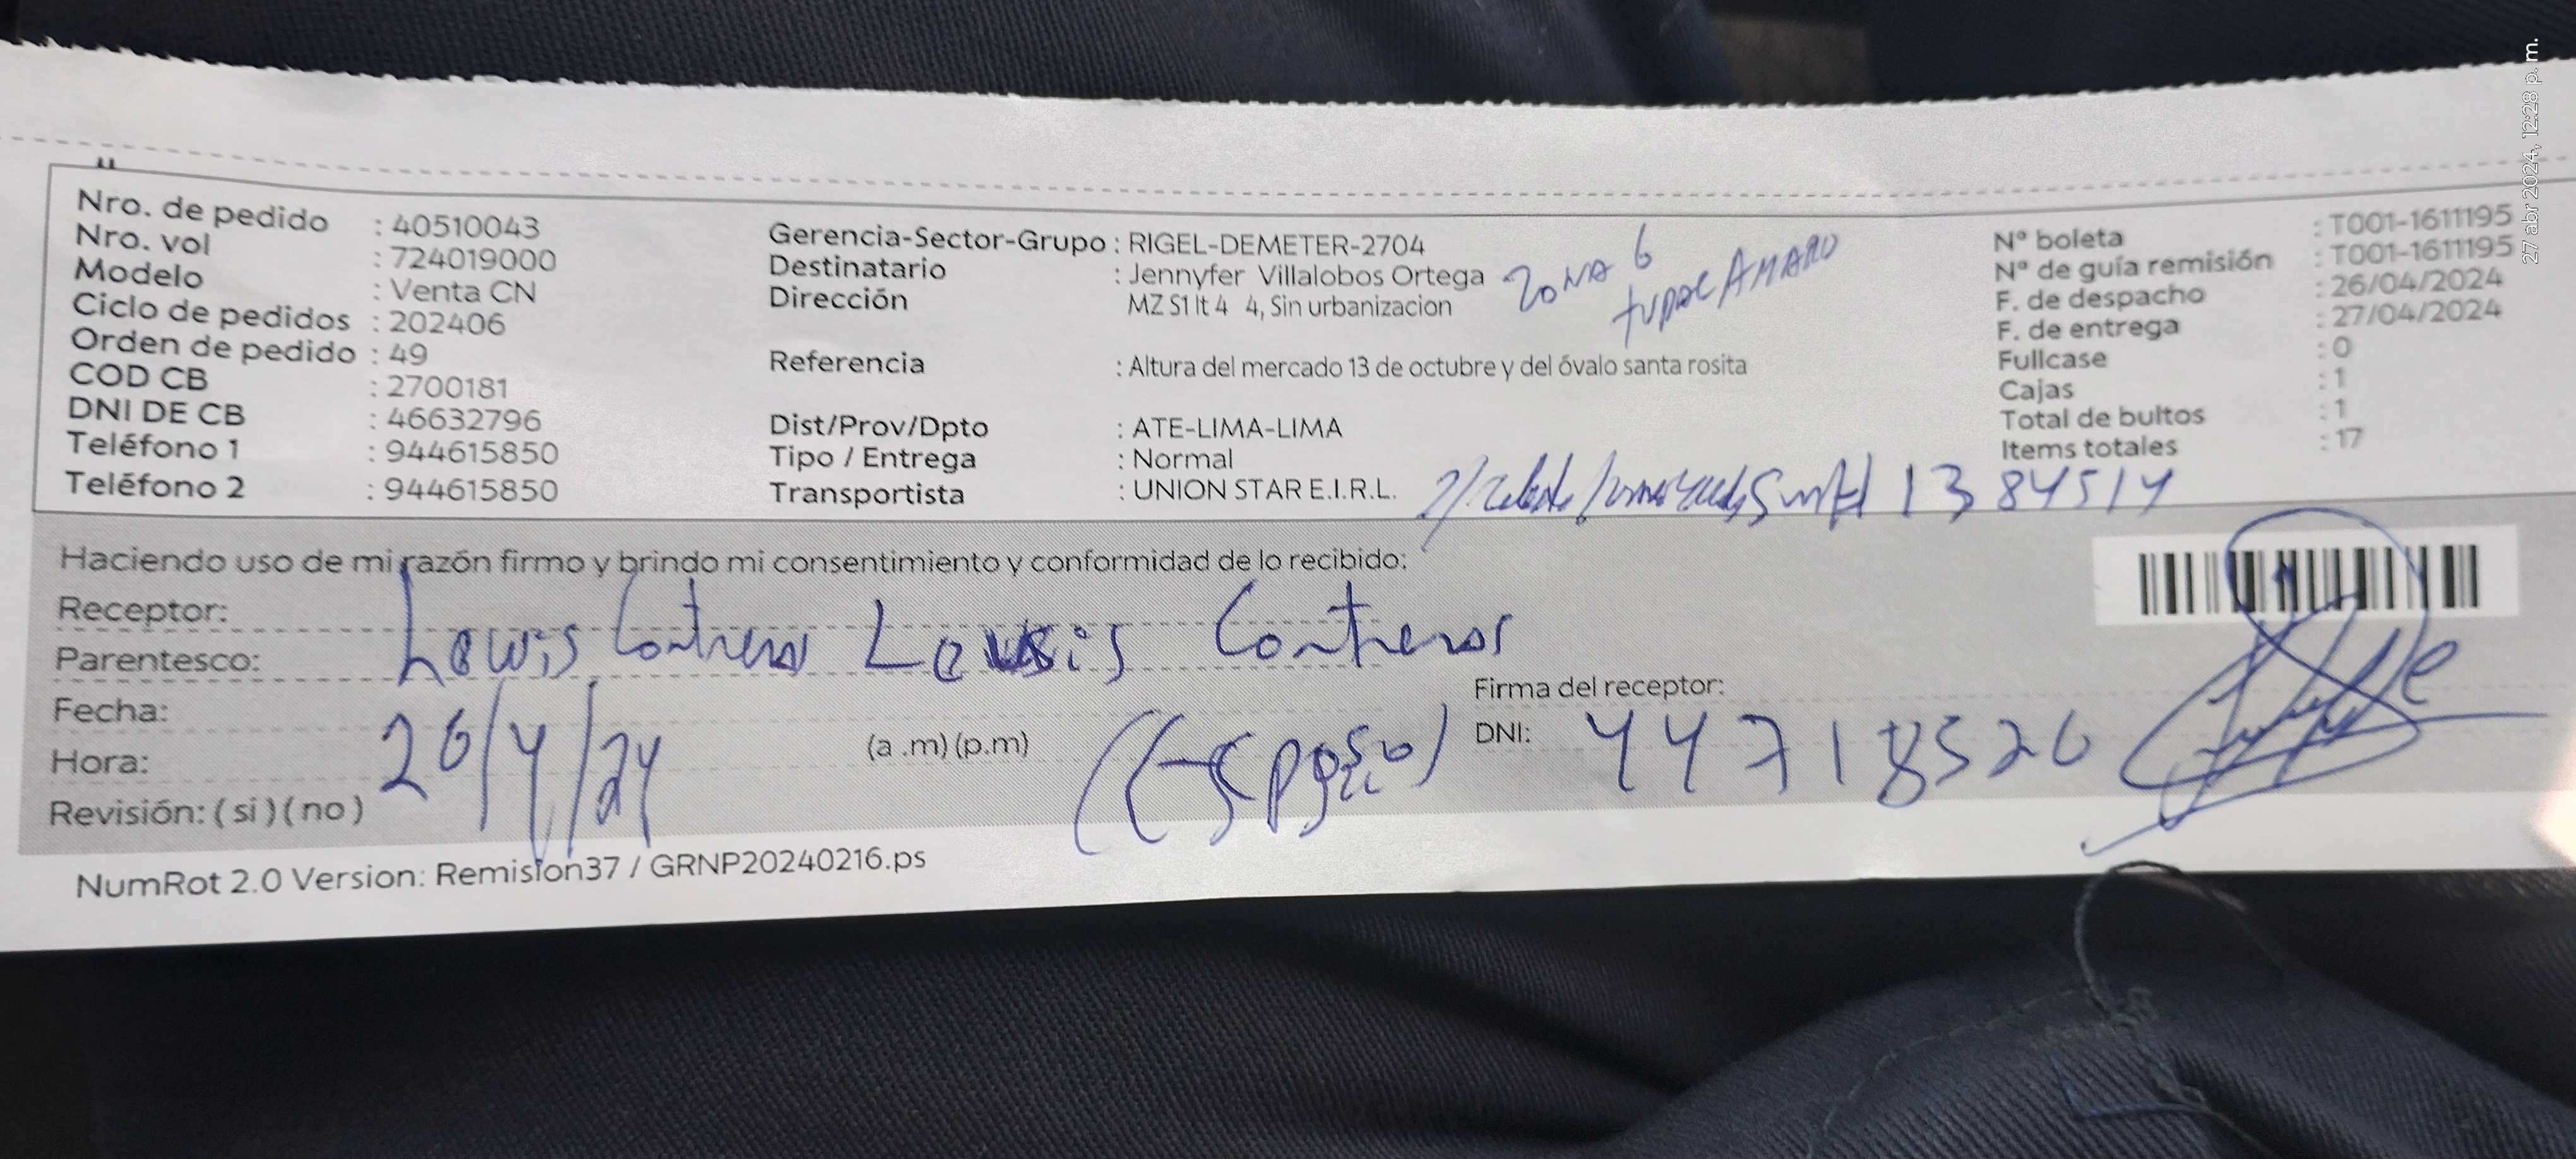 Nro. de pedido : 40510043
Nro. vol : 724019000
Modelo : Venta CN
Ciclo de pedidos : 202406
Orden de pedido : 49
COD CB : 2700181
DNI DE CB : 46632796
Teléfono 1 : 944615850
Teléfono 2 : 944615850
Gerencia-Sector-Grupo : RIGEL-DEMETER-2704
Destinatario : Jennyfer Villalobos Ortega
Dirección MZ S1 lt 4 4, Sin urbanizacion
ZONA 6
TUPAC AMARU
Referencia : Altura del mercado 13 de octubre y del óvalo santa rosita
Dist/Prov/Dpto : ATE-LIMA-LIMA
Tipo / Entrega : Normal
Transportista : UNION STAR E.I.R.L.
Nº boleta : T001-1611195
Nº de guía remisión : T001-1611195
F. de despacho : 26/04/2024
F. de entrega : 27/04/2024
Fullcase : 0
Cajas : 1
Total de bultos : 1
Items totales : 17
Haciendo uso de mi razón firmo y brindo mi consentimiento y conformidad de lo recibido:
Receptor:
Parentesco: Lewis Contreras Lewis Contreras
Fecha:
Hora: 26/4/24 (a .m) (p.m) (Esposo)
Revisión: ( si ) ( no )
Firma del receptor:
DNI: 44718526
NumRot 2.0 Version: Remision37 / GRNP20240216.ps
27 abr 2024, 12:28 p. m.